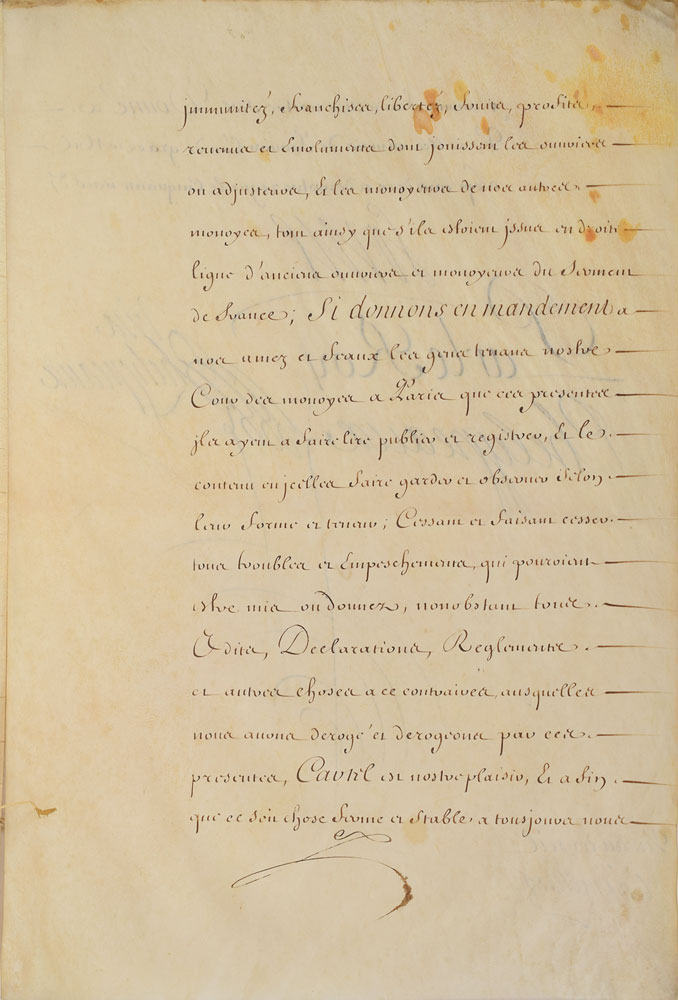 jmmunitéz, franchises, libertéz, fruits, profits,
reuenus et Emolumens dont jouissent les ouuriers
ou adjusteurs, Et les monoyeurs de nos autres
monoyes, tout ainsy que s'ils estoient jssus en droite
ligne d'anciens ouuriers et monoyeurs du serment
de france; Si donnons en mandement a
nos amez et feaux les gens tenans nostre
Cour des monoyes a Paris que ces presentes
jls ayent a faire lire publier et registrer, Et le
contenu en jcelles faire garder et obseruer selon
leur forme et teneur; Cessant et faisant cesser
tous troubles et Empeschemens, qui pouroient
estre mis ou donnez, nonobstant tous
Edits, Declarations, Reglements
et autres choses a ce contraires, ausquelles
nous auons derogé et derogeons par ces
presentes, Car tel est nostre plaisir, Et afin
que ce soit chose ferme et stable a tousjours nous